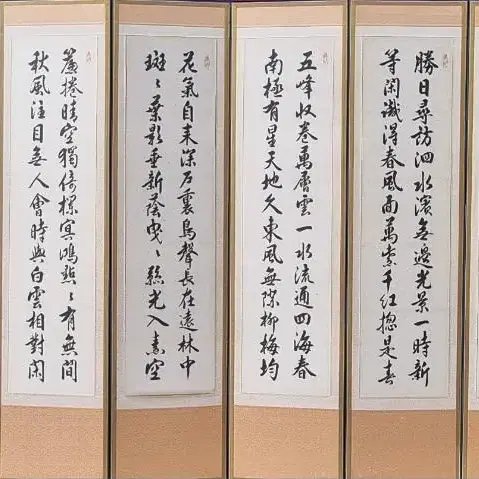 勝日尋訪泗水濱無邊光景一時新
等閑識得春風面萬紫千紅揔是春
五峰收卷萬層雲一水流通四海春
南極有星天地久東風無際柳梅均
花氣自來深戶裏鳥聲長在遠林中
斑〻葉影垂新蔭曳〻絲光入素空
簾捲晴空獨倚冥鴻點〻有無間
秋風注目無人會時與白雲相對閑